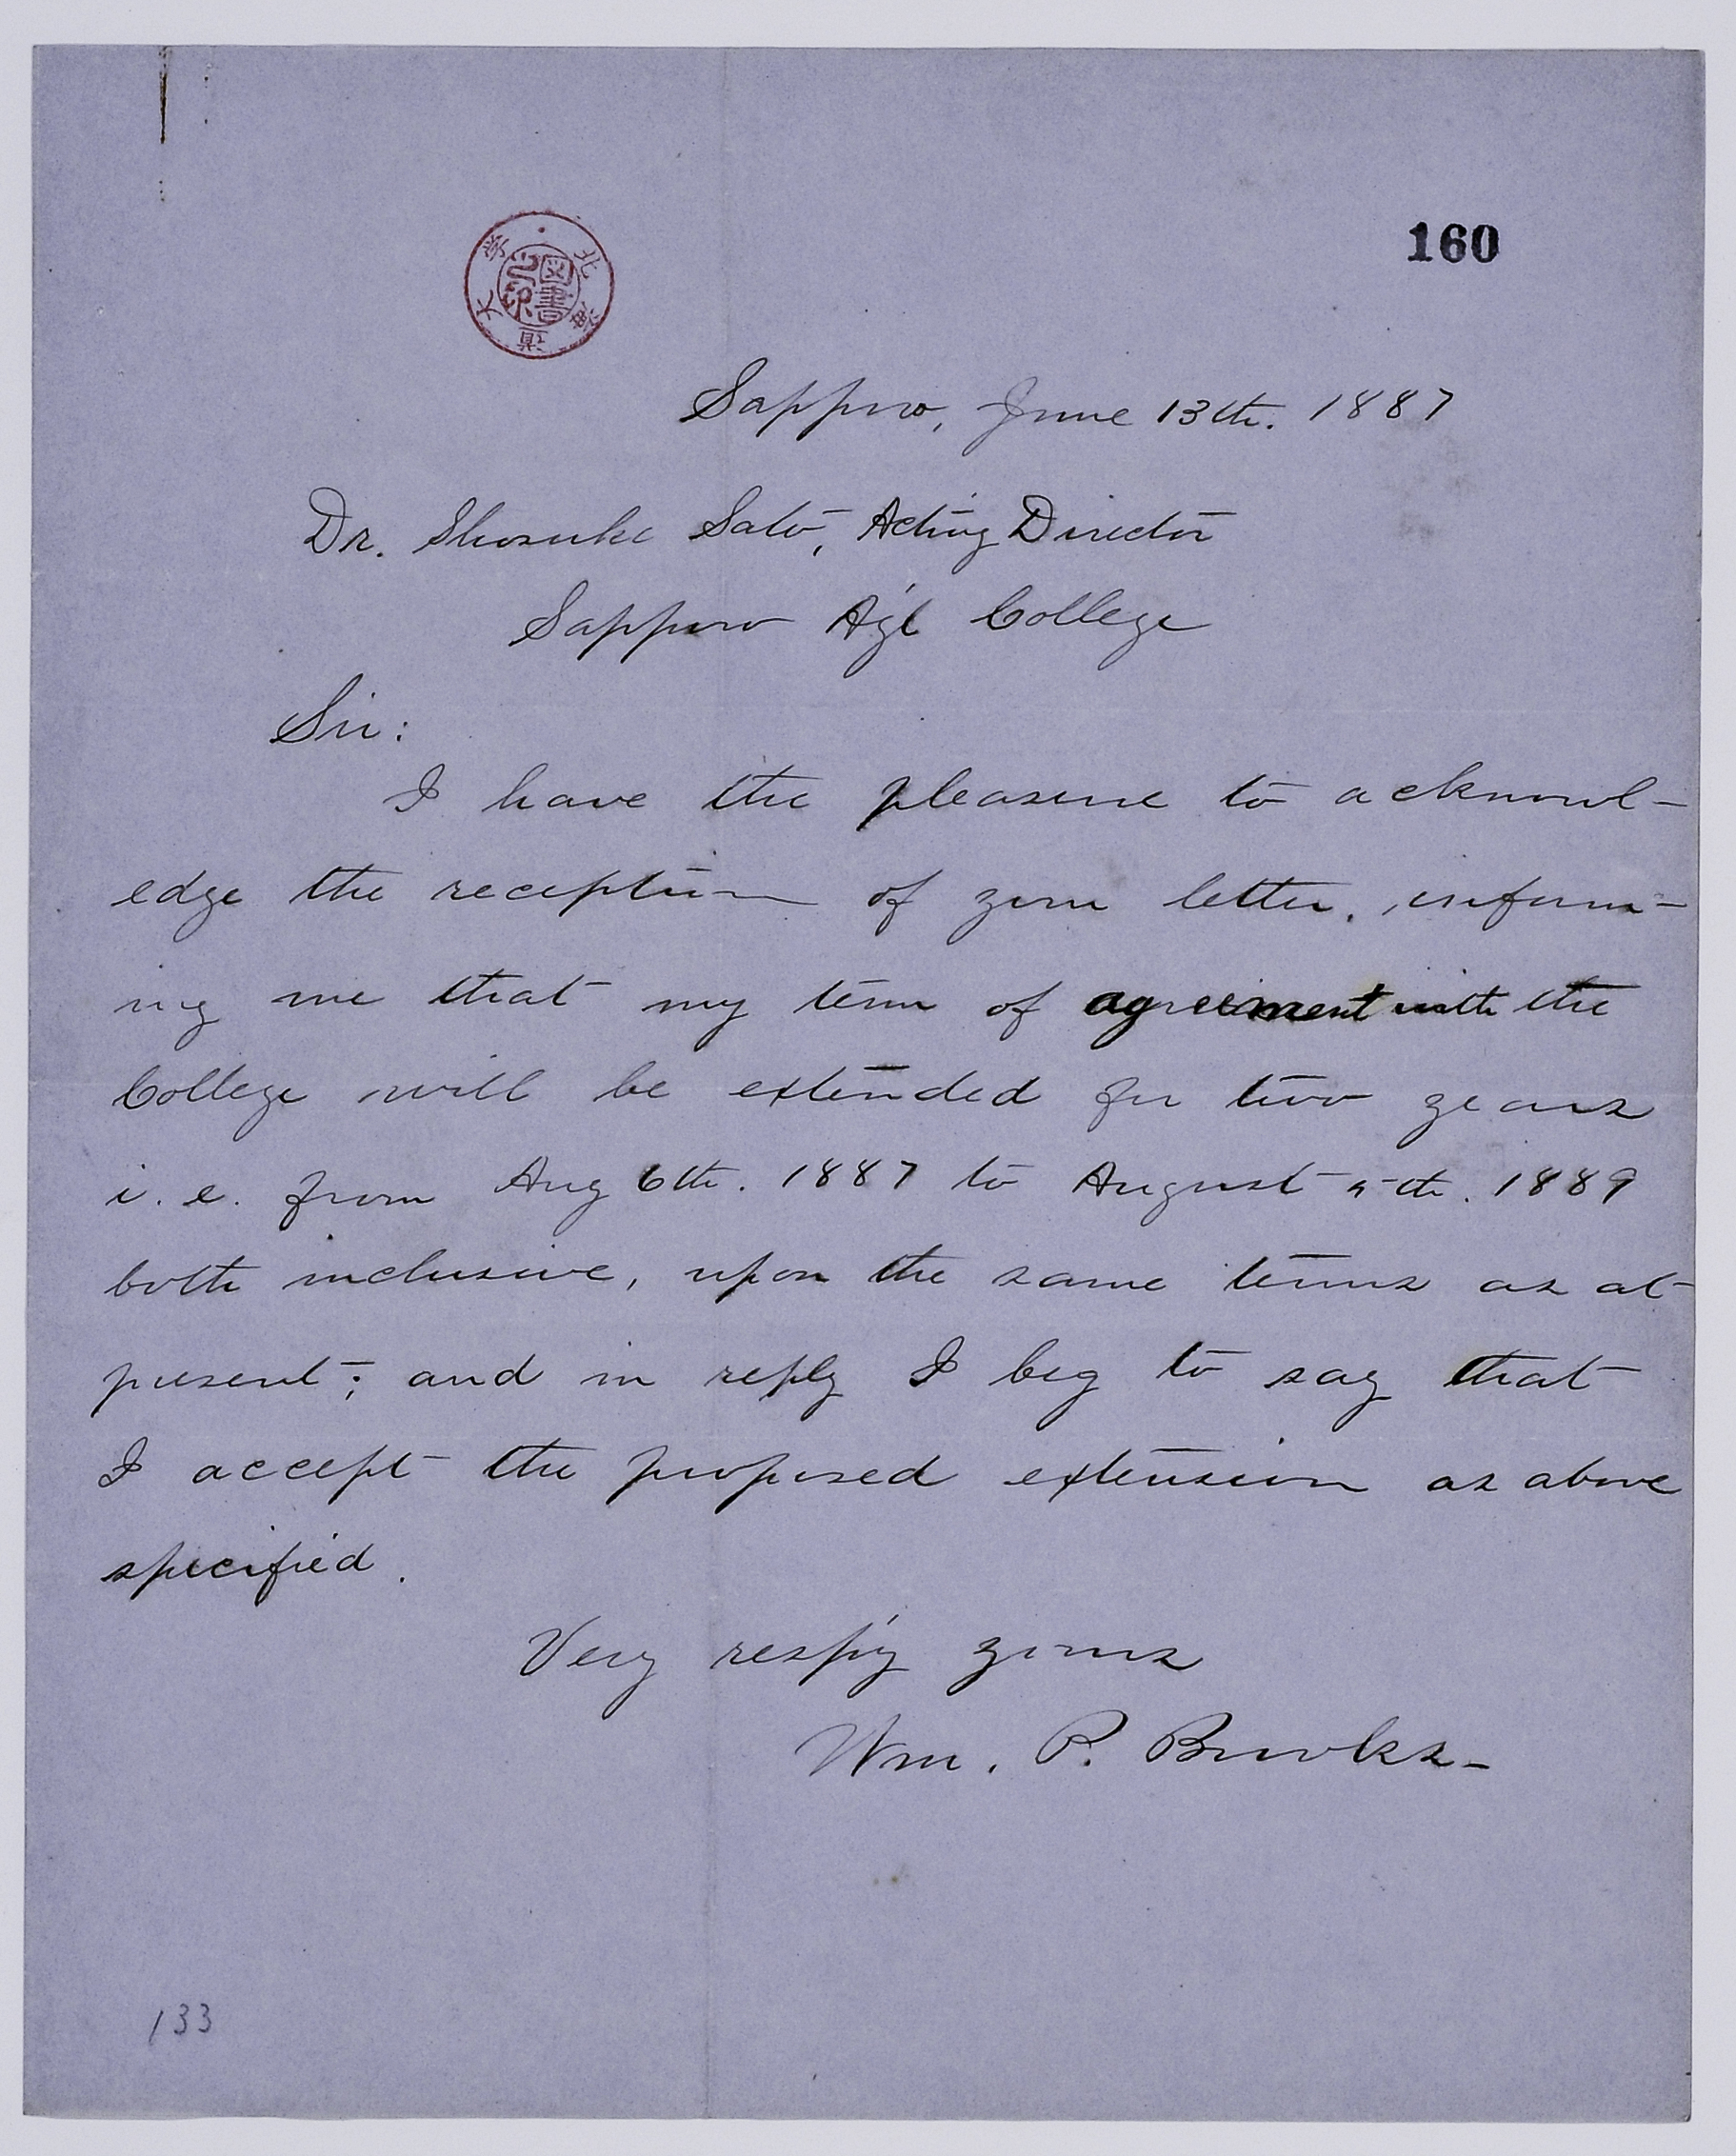 160
北海道大学
図書之印
Sapporo, June 13th. 1887
Dr. Shosuke Sato, Acting Director
Sapporo Ag'l College
Sir:
I have the pleasure to acknowl-
edge the reception of your letter, inform-
ing me that my term of agreement with the
College will be extended for two years
i. e. from Aug 6th. 1887 to August 5th. 1889
both inclusive, upon the same terms as at
present; and in reply I beg to say that
I accept the proposed extension as above
specified.
Very resp'y yours
Wm. P. Brooks-
133